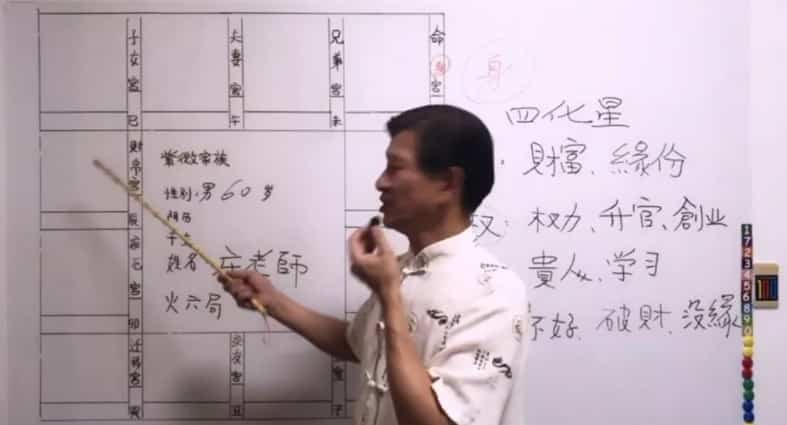 子女宮 巳
夫妻宮 午
兄弟宮 未
命身宮
身
財帛宮 辰
紫微家族
性别:男 60岁
阴历
姓名 庄老師
火六局
疾厄宮 卯
迁移宮 寅
交友宮 丑
宮 子
四化星
財富、緣份
权:权力、升官、創业
貴人、学习
不好、破財、没緣
1
7
2
3
4
5
6
8
9
0